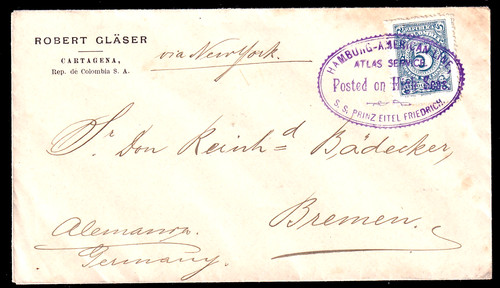 ROBERT GLÄSER
CARTAGENA,
Rep. de Colombia S. A.
via New York.
HAMBURG-AMERICAN LINE
ATLAS SERVICE
Posted on High Seas
S. S. PRINZ EITEL FRIEDRICH.
5
Sr. Don Reinhd Bädecker,
Bremen.
Alemania.
Germany.